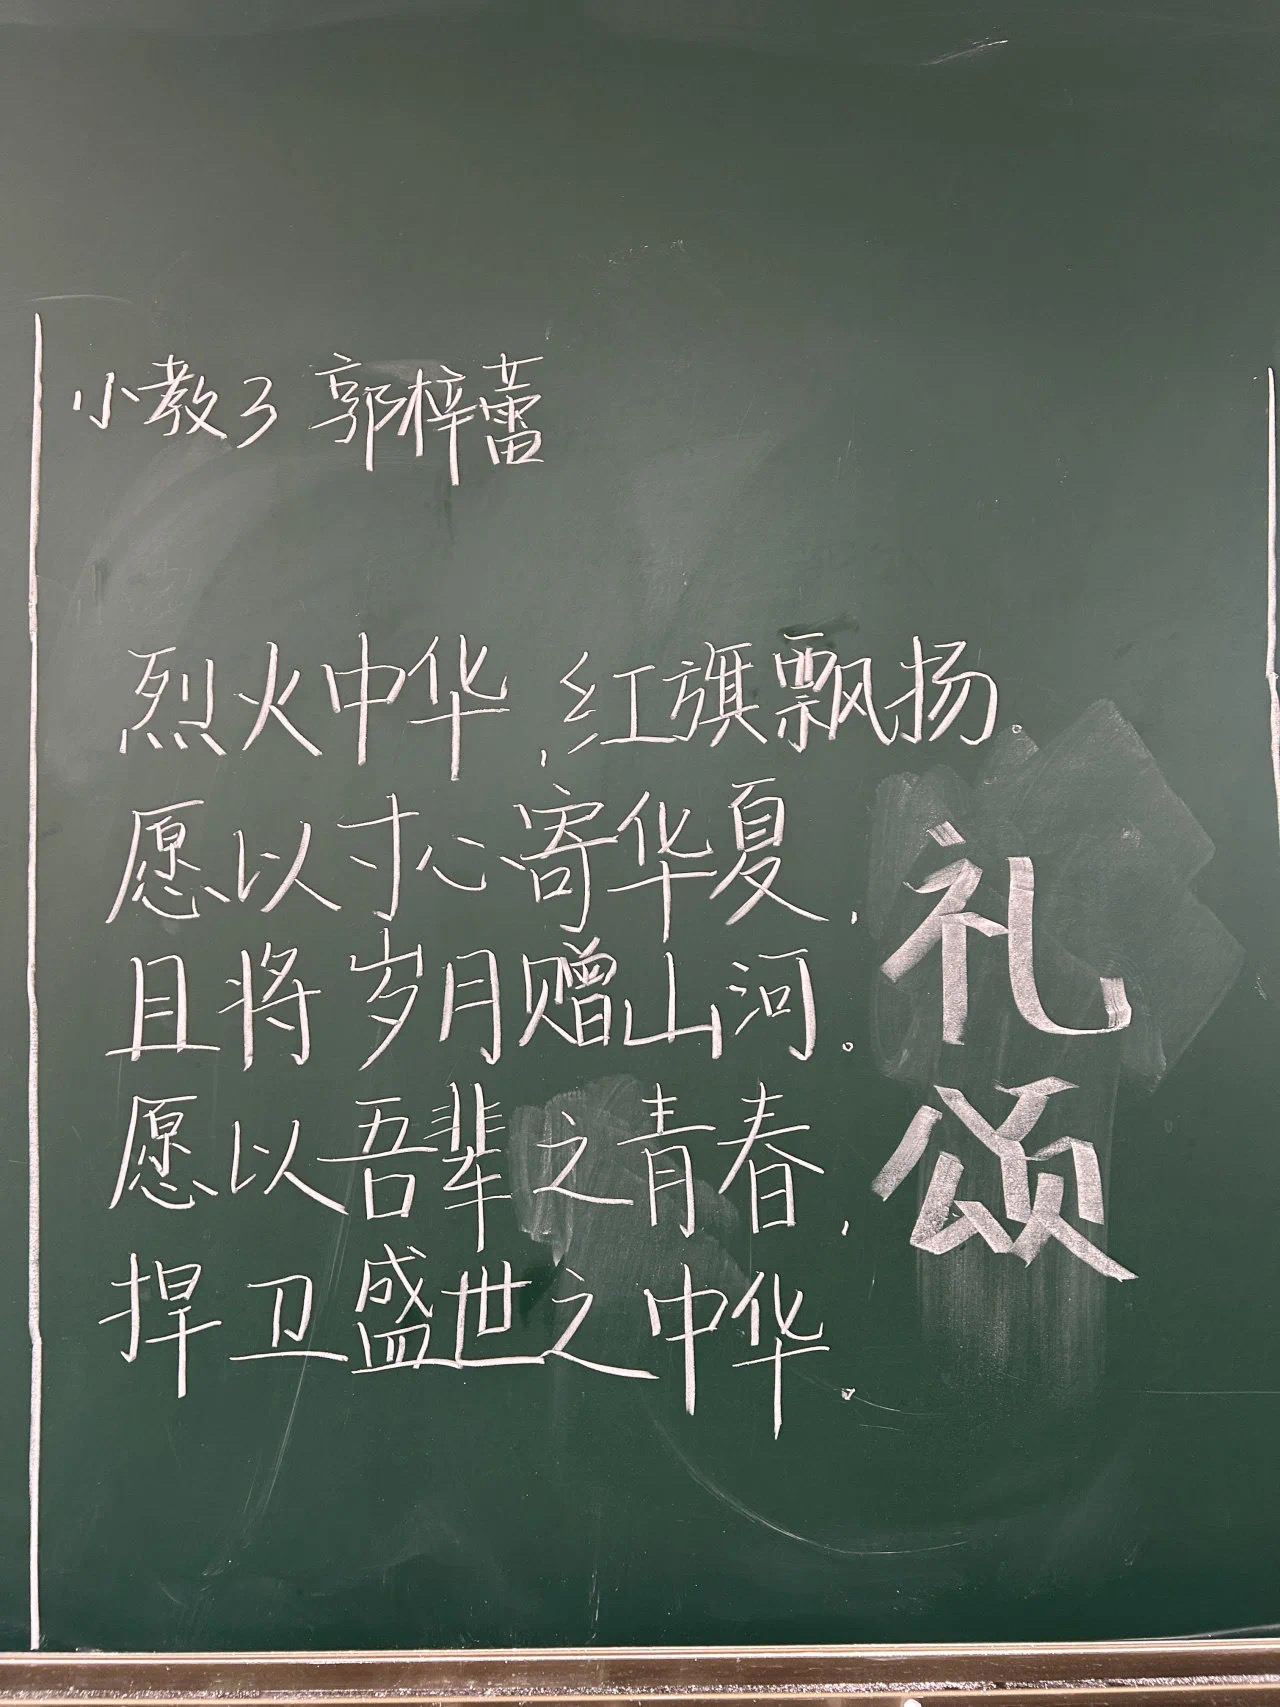 小教3 郭梓蕾
烈火中华,红旗飘扬。
愿以寸心寄华夏,
且将岁月赠山河。
愿以吾辈之青春,
捍卫盛世之中华。
礼颂